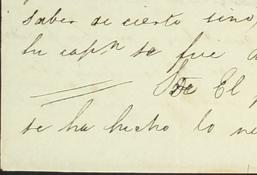 saber de cierto sino
su cap.n se fue a
De El
se ha hecho lo ne